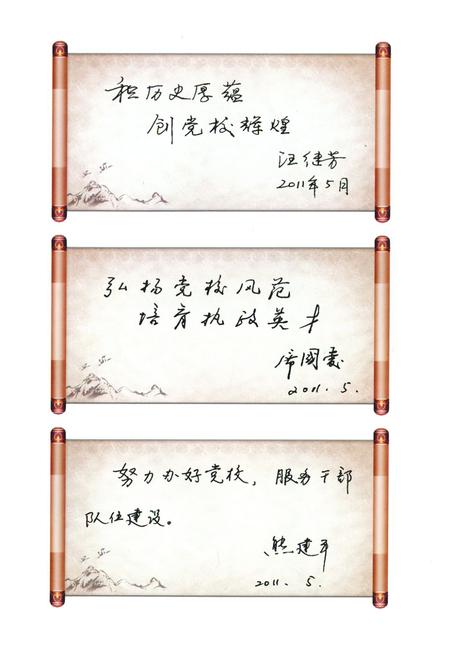 积历史厚蕴
创党校辉煌
汪继芳
2011年5月
弘扬党校风范
培育执政英才
席國震
2011.5.
努力办好党校，服务干部
队伍建设。
熊建平
2011.5.